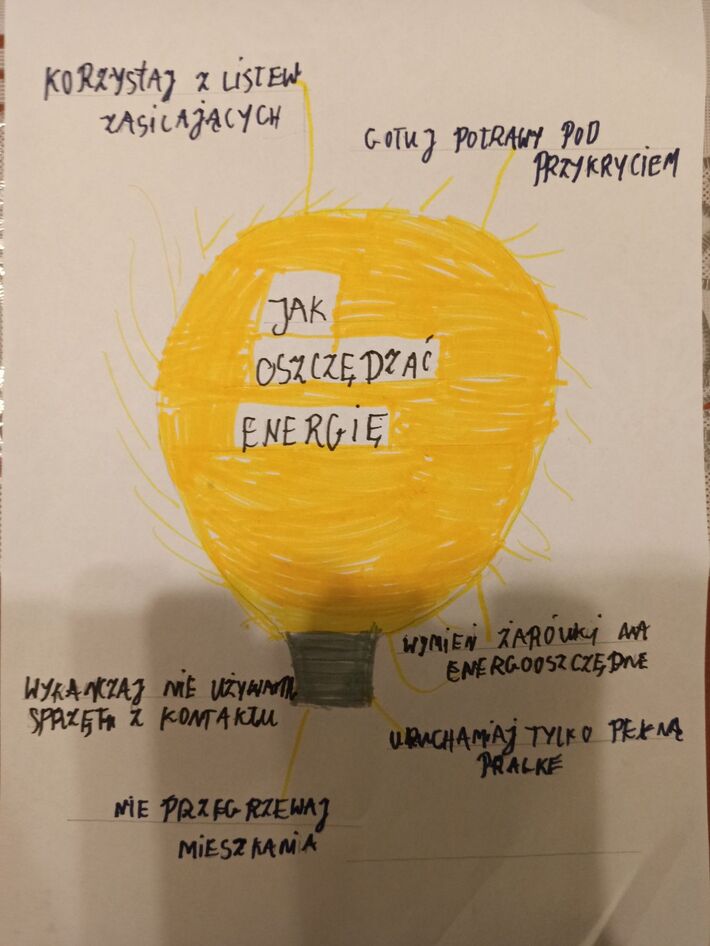 KORZYSTAJ Z LISTEW
ZASILAJĄCYCH
GOTUJ POTRAWY POD
PRZYKRYCIEM
JAK
OSZCZĘDZAĆ
ENERGIĘ
WYMIEŃ ŻARÓWKI NA
ENERGOOSZCZĘDNE
WYKAŃCZAJ NIE UŻYWANE
SPRZĘTY Z KONTAKTU
URUCHAMIAJ TYLKO PEŁNĄ
PRALKE
NIE PRZEGRZEWAJ
MIESZKANIA